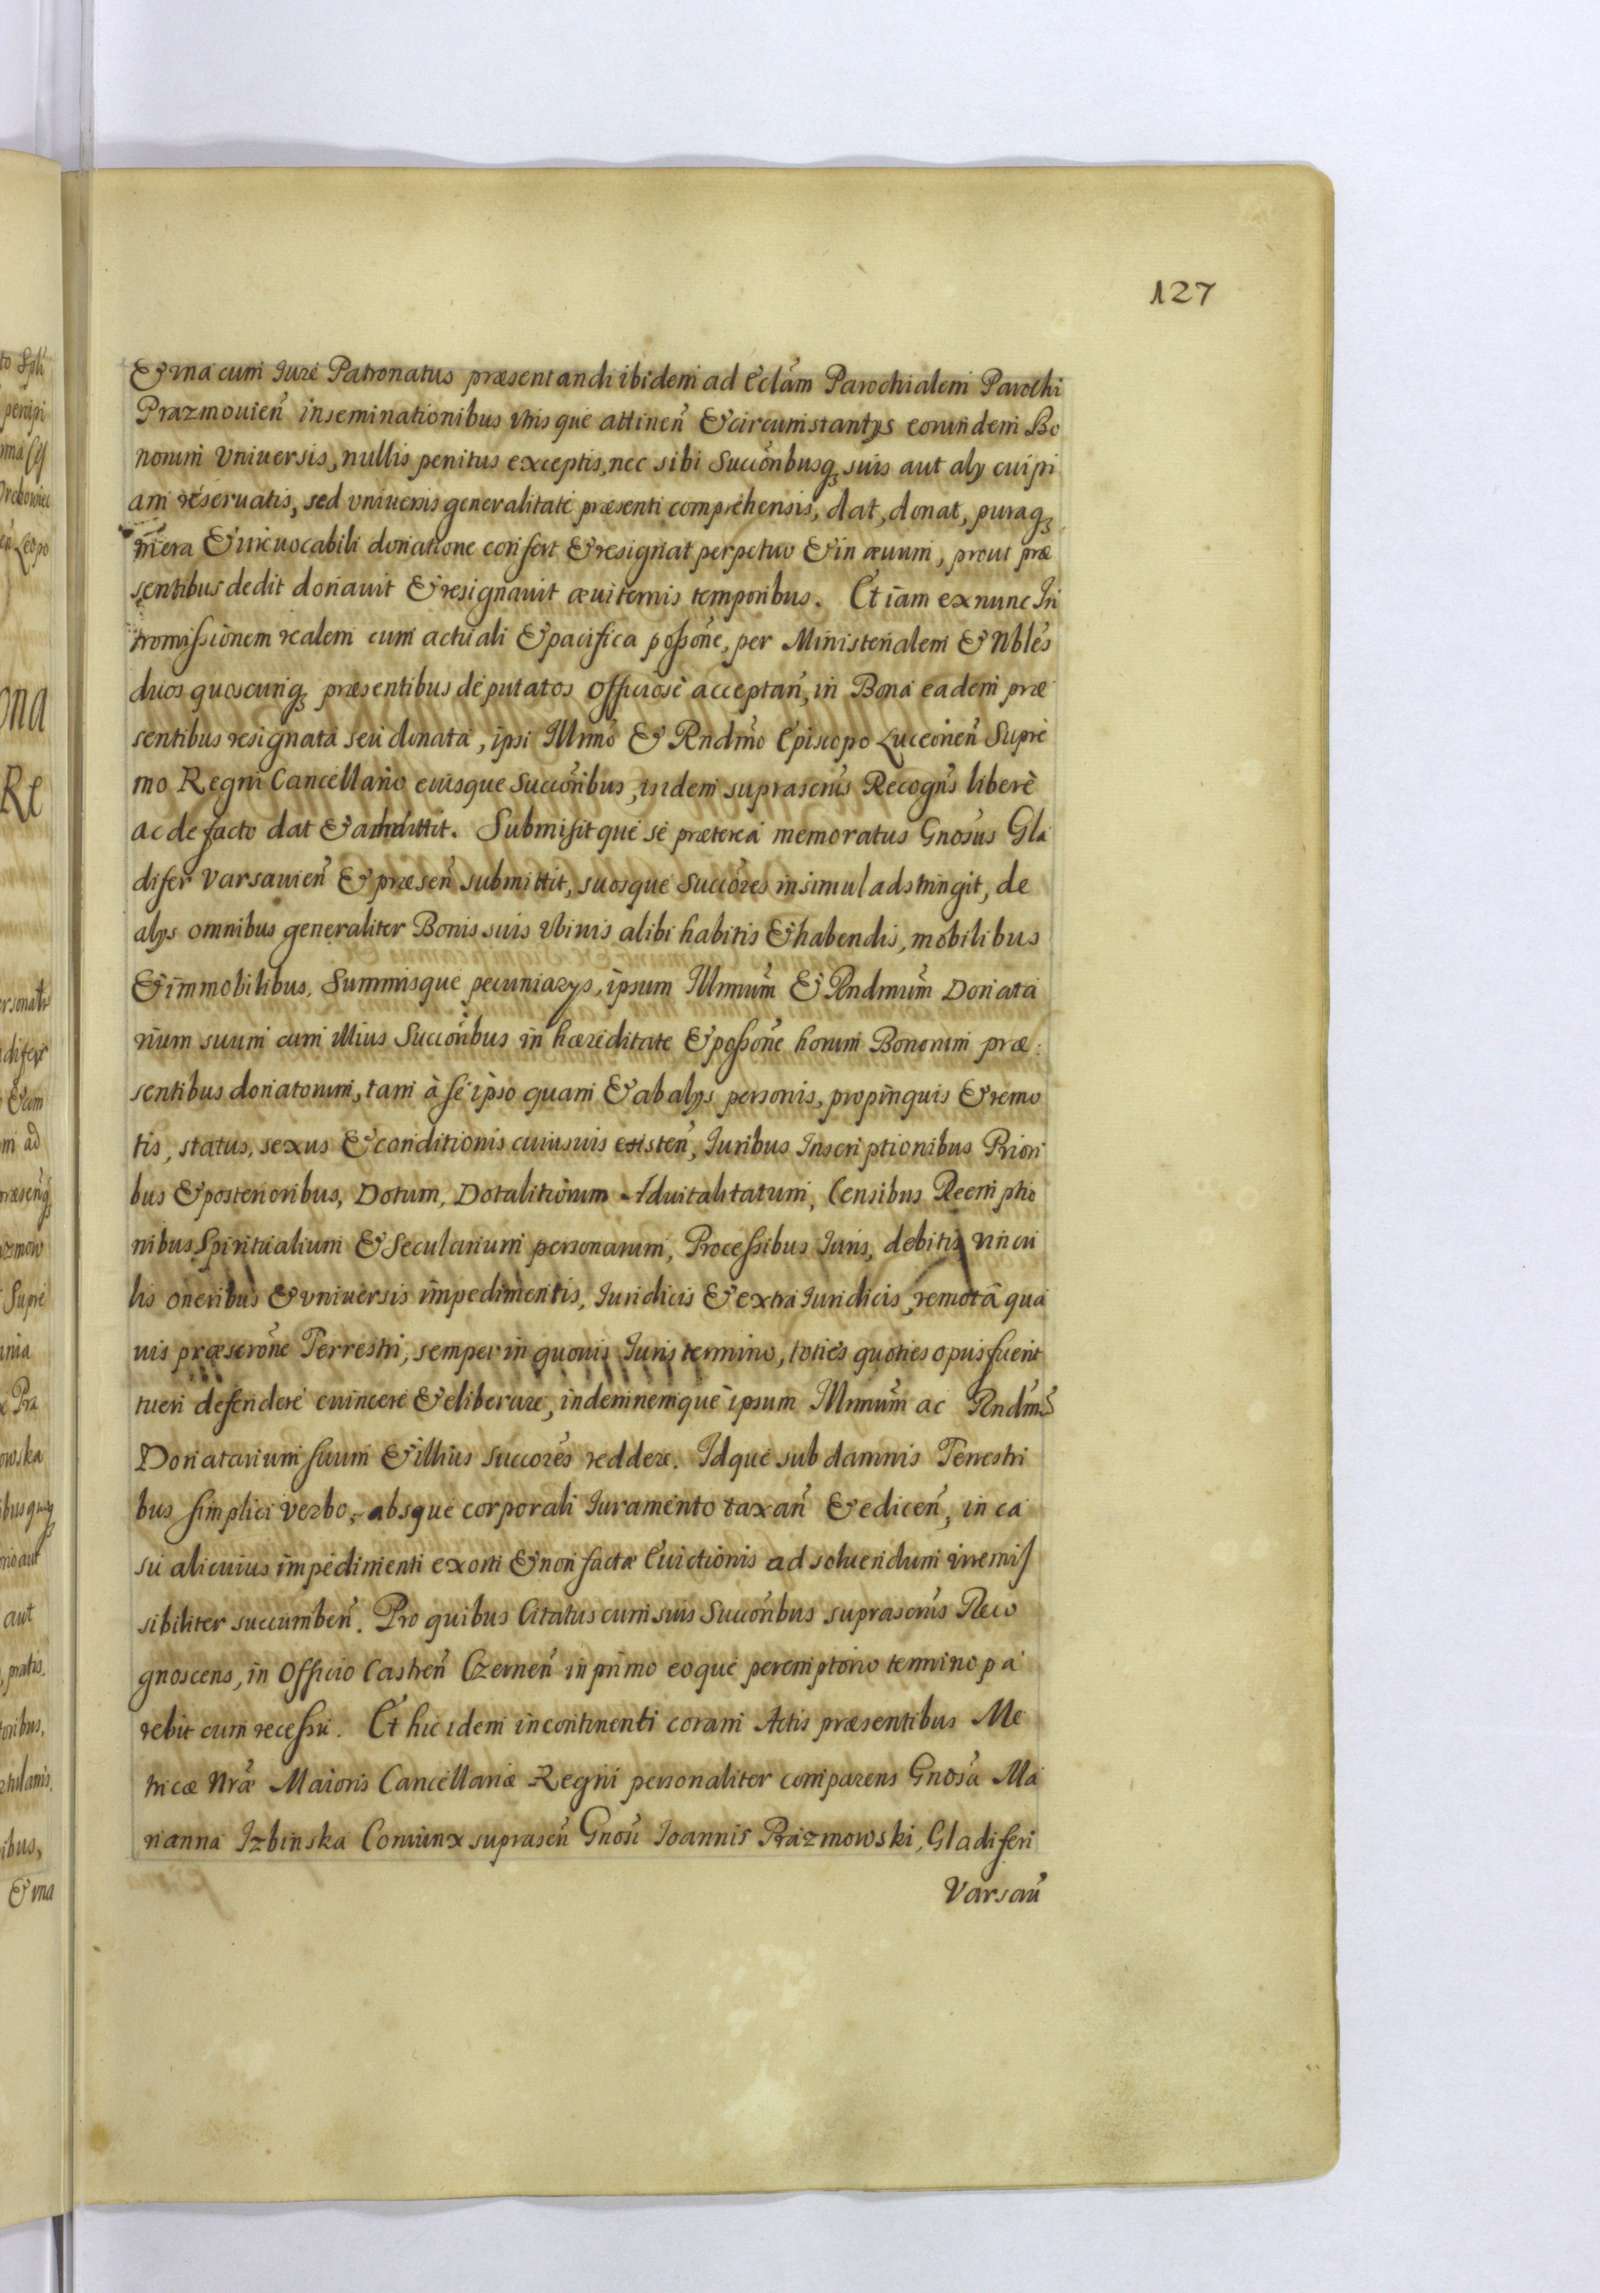 127
& vna cum Iure Patronatus præsentandi ibidem ad Ecl̃am Parochialem Parochi
Prazmouieñ inseminationibus vtrisque attineñ & circumstantijs eorundem Bo
norum Vniuersis, nullis penitus exceptis, nec sibi Succõribusq; suis aut alij cuipi
am reseruatis, sed vniuersis generalitate præsenti comprehensis, dat, donat, puraq;
mera & irreuocabili donatione confert & resignat perpetuo & in æuum, prout præ
sentibus dedit donauit & resignauit æuiternis temporibus. Et iam ex nunc In
tromissionem realem cum actuali & pacifica possõne, per Ministerialem & Nbles
duos quoscunq; præsentibus deputatos officiose acceptañ, in Bona eadem præ
sentibus resignata seu donata, ipsi Illmo & Rndmo Episcopo Luceorieñ Supre
mo Regni Cancellario eiusque Succõribus, isidem suprascrus Recogñs liberè
ac de facto dat & admittit. Submisitque se præterea memoratus Gnosus Gla
difer Varsauieñ & præseñ submittit, suosque Succores insimul adstringit, de
alijs omnibus generaliter Bonis suis vbiuis alibi habitis & habendis, mobilibus
& immobilibus, Summisque pecuniarijs, ipsum Illmum & Rndmum Donata
rium suum cum illius Succõribus in hæreditate & possõne horum Bonorum præ:
sentibus donatorum, tam à se ipso quam & ab alijs personis, propinquis & remo
tis, status, sexus & conditionis cuiusuis existeñ, Iuribus Inscriptionibus Priori
bus & posterioribus, Dotum, Dotalitiorum Aduitalitatum, Censibus Reemptio
nibus Spiritualium & Secularium personarum, Processibus Iuris, debitis vincu
lis oneribus & vniuersis impedimentis, Iuridicis & extra Iuridicis, remotâ qua
uis præscrõne Terrestri, semper in quouis Iuris termino, toties quoties opus fuerit
tueri defendere euincere & eliberare, indemnemque ipsum Illmum ac Rndmũ
Donatarium suum & illius Succores reddere. Idque sub damnis Terrestri
bus simplici verbo, absque corporali Iuramento taxañ & ediceñ, in ca
su alicuius impedimenti exorti & non factæ Euictionis ad soluendum irremis
sibiliter succumbeñ. Pro quibus Citatus cum suis Succõribus suprascrus Reco
gnoscens, in Officio Castreñ Czerneñ in primo eoque peremptorio termino pa
rebit cum recessu. Et hic idem incontinenti coram Actis præsentibus Me
tricæ Nræ Maioris Cancellariæ Regni personaliter comparens Gnosa Ma
rianna Izbinska Coniunx supraseñ Gnosi Ioannis Prazmowski, Gladiferi
Varsaũ